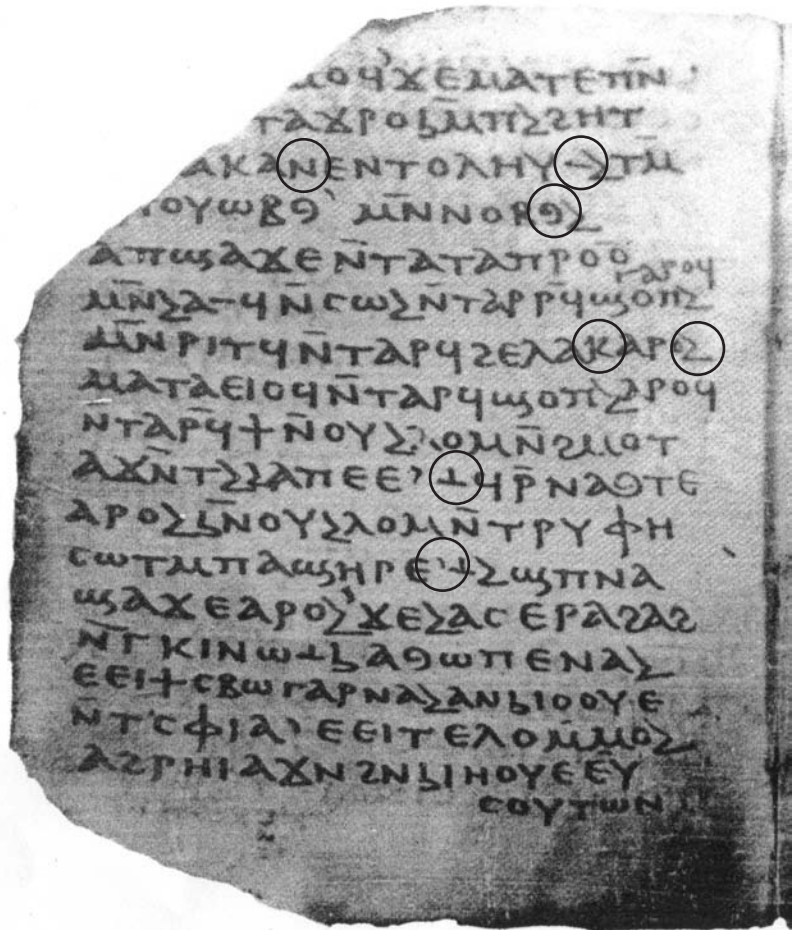 ⲙⲟϥϫⲉⲙⲁⲧⲉⲡⲛ̄
ⲧⲁϫⲣⲟϧⲙ̄ⲡⲹϩⲏⲧ
ⲁⲕⲁⲛⲉⲛⲧⲟⲗⲏⲩⲻⲹⲧⲙ̄
ⲟⲩⲱⲃⳋ' ⲙ̄ⲛⲛⲟⲃⳋⲹ
ⲁⲡϣⲁϫⲉⲛ̄ⲧⲁⲧⲁⲡⲣⲟⲟ̄
ⲅⲁⲣⲟϥ
ⲙ̄ⲛⲹⲁⲻϥⲛ̄ⲥⲱⲹⲛ̄ⲧⲁⲣⲣ̄ϥϣⲟⲡⲹ
ⲙ̄ⲛⲣⲓⲧϥⲛ̄ⲧⲁⲣϥϩⲉⲗⲁⲕⲁⲣⲟⲹ
ⲙⲁⲧⲁⲉⲓⲟϥⲛ̄ⲧⲁⲣϥϣⲟⲡⲹⲁⲣⲟϥ
ⲛⲧⲁⲣ̄ϥϯⲛ̄ⲟⲩⲹⲗⲟⲙⲛ̄ϩⲙⲟⲧ
ⲁϫⲛ̄ⲧⲹⲁⲡⲉⲉ'ⲳϥⲣ̄ⲛⲁⳋⲧⲉ
ⲁⲣⲟⲹϧⲛ̄ⲟⲩⲹⲗⲟⲙⲛ̄ⲧⲣⲩⲫⲏ
ⲥⲱⲧⲙⲡⲁϣⲏⲣⲉ'ⲳⲹϣⲡⲛⲁ
ϣⲁϫⲉⲁⲣⲟⲹ'ϫⲉⲹⲁⲥⲉⲣⲁϩⲁϩ
ⲛ̄ⲅⲕⲓⲛⲱⲳϧⲁⳋⲱⲡⲉⲛⲁⲹ
ⲉⲉⲓϯⲥⲃⲱⲅⲁⲣⲛⲁⲹⲁⲛϧⲓⲟⲟⲩⲉ
ⲛⲧⲥⲫⲓⲁ' ⲉⲉⲓⲧⲉⲗⲟⲙ̄ⲙⲟⲹ
ⲁϩⲣⲏⲓⲁϫⲛϩⲛϧⲓⲏⲟⲩⲉⲉⲩ
ⲥⲟⲩⲧⲱⲛ